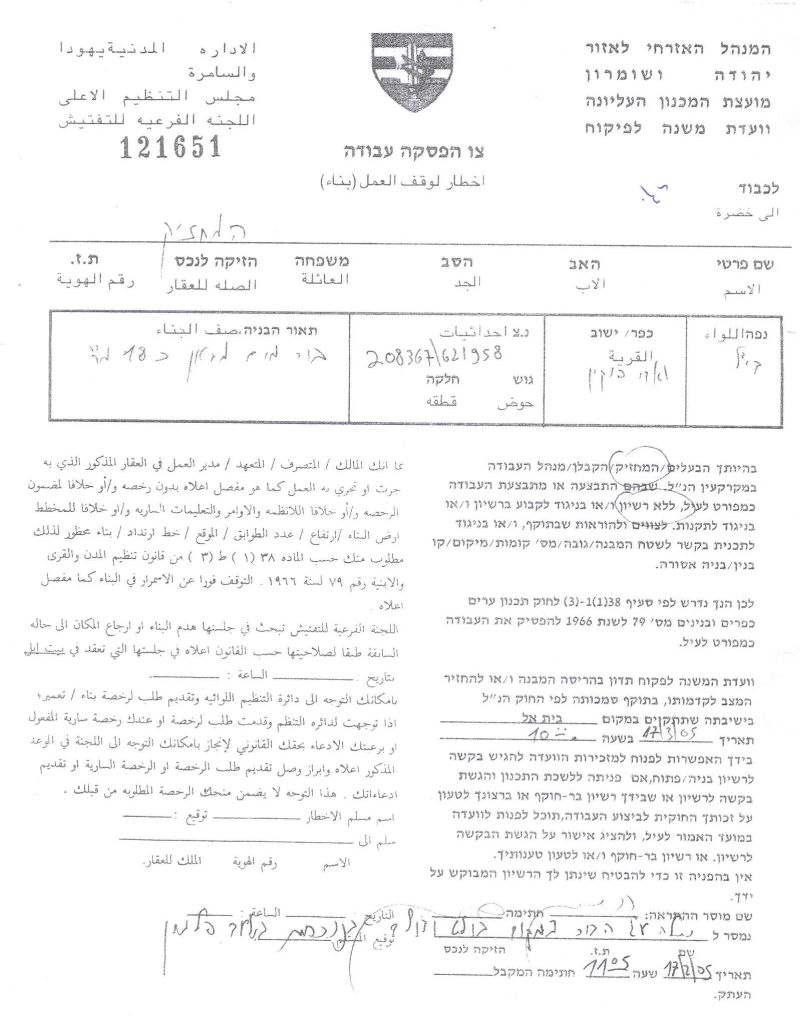 המנהל האזרחי לאזור
יהודה ושומרון
מועצת המכנון העליונה
וועדת משנה לפיקוח
الاداره المدنية يهودا
والسامرة
مجلس التنظيم الاعلى
اللجنه الفرعيه للتفتيش
121651
צו הפסקה עבודה
اخطار لوقف العمل (بناء)
לכבוד
الى حضرة
המחזיק
שם פרטי האב הסב משפחה הזיקה לנכס ת.ז.
الاسم الاب الجد العائلة الصله للعقار رقم الهوية
נפה اللواء כפר/ ישוב נ.צ احداثيات תאור הבניה، صف البناء
القرية
ואדי פוקין
208367\621958
בור מים מבטון כ 18 מ"ר
גוש חלקה
حوض قطقه
בהיותך הבעלים/המחזיק/הקבלן/מנהל העבודה
במקרקעין הנ"ל. שבהם התבצעה או מתבצעת העבודה
כמפורט לעיל, ללא רשיון ו/או בניגוד לקבוע ברשיון ו/או
בניגוד לתקנות. לצווים ולהוראות שבתוקף, ו/או בניגוד
לתכנית בקשר לשטח המבנה/גובה/מס' קומות/מיקום/קו
בנין/בניה אסורה.
לכן הנך נדרש לפי סעיף 38(1)-1(3) לחוק תכנון ערים
כפרים ובנינים מס' 79 לשנת 1966 להפסיק את העבודה
כמפורט לעיל.
וועדת המשנה לפקוח תדון בהריסה המבנה ו/או להחזיר
המצב לקדמותו, בתוקף סמכותה לפי החוק הנ"ל
בישיבתה שתתקיים במקום בית אל
תאריך 17/3/05 בשעה 10
בידך האפשרות לפנות למזכירות הוועדה להגיש בקשה
לרשיון בניה/פתוח, אם פניתה ללשכת התכנון והגשת
בקשה לרשיון או שבידך רשיון בר-חוקף או ברצונך לטעון
על זכותך החוקית לביצוע העבודה, תוכל לפנות לוועדה
במועד האמור לעיל, ולהציג אישור על הגשת הבקשה
לרשיון. או רשיון בר-חוקף ו/או לטעון טענותיך.
אין בהפניה זו כדי להבטיח שינתן לך הרשיון המבוקש על
ידך.
بما انك المالك / المتصرف / المتعهد / مدير العمل في العقار المذكور الذي به
جرت او تجري به العمل كما هو مفصل اعلاه بدون رخصه و/أو خلافا لمضمون
الرخصه و/أو خلافا اللانظمه والاوامر والتعليمات الساريه و/او خلافا للمخطط
ارض البناء /ارتفاع / عدد الطوابق / الموقع / خط ارتداد / بناء محظور لذلك
مطلوب منك حسب الماده ٣٨ (١) ط (٣) من قانون تنظيم المدن والقرى
والابنية رقم ٧٩ لسنة ١٩٦٦ . التوقف فورا عن الاسمرار في البناء كما مفصل
اعلاه .
اللجنة الفرعية للتفتيش تبحث في جلستها هدم البناء او ارجاع المكان الى حاله
السابقة طبقا لصلاحيتها حسب القانون اعلاه في جلستها التي تعقد في بيت ايل
بتاريخ . الساعة :
بامكانك التوجه الى دائرة التنظيم اللوائيه وتقديم طلب لرخصة بناء / تعمير؛
اذا توجهت لدائره التنظم وقدمت طلب لرخصة او عندك رخصة سارية المفعول
او برغبتك الادعاء بحقك القانوني لإنجاز بامكانك التوجه الى اللجنة في الموعد
المذكور اعلاه وابراز وصل تقديم طلب الرخصة او الرخصة السارية او تقديم
ادعاءاتك . هذا التوجه لا يضمن منحك الرخصة المطلوبه من قبلك .
اسم مسلم الاخطار توقيع :
سلم الى
الاسم رقم الهوية الملك للعقار.
التاريخ الساعة :
توقيع
שם מוסר ההתראה: חתימה
נמסר ל
שם ת.ז. הזיקה לנכס
תאריך 17/2/05 שעה 1105 חתימה המקבל
העתק.